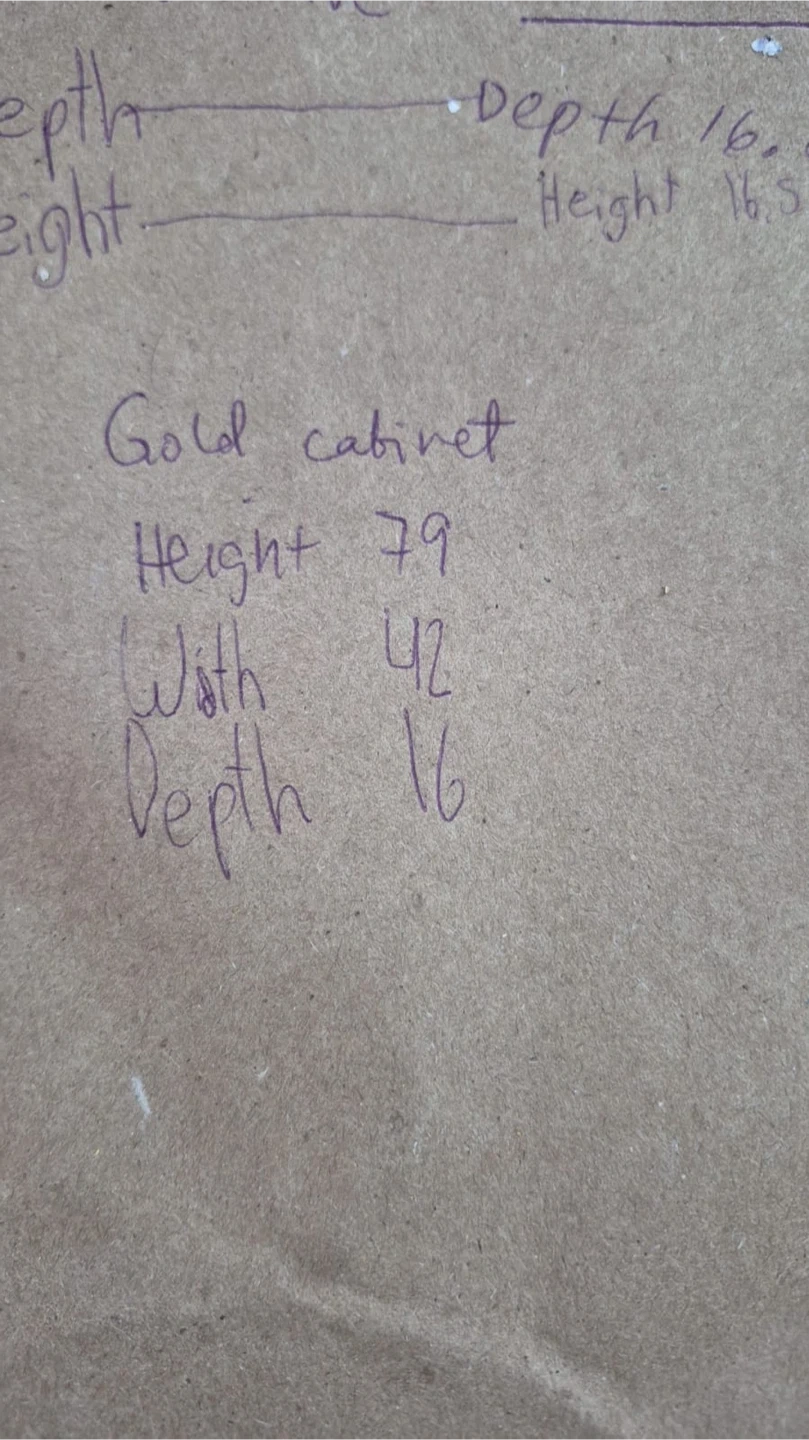 epth Depth 16.
eight Height 16.5
Gold cabinet
Height 79
With 42
Depth 16